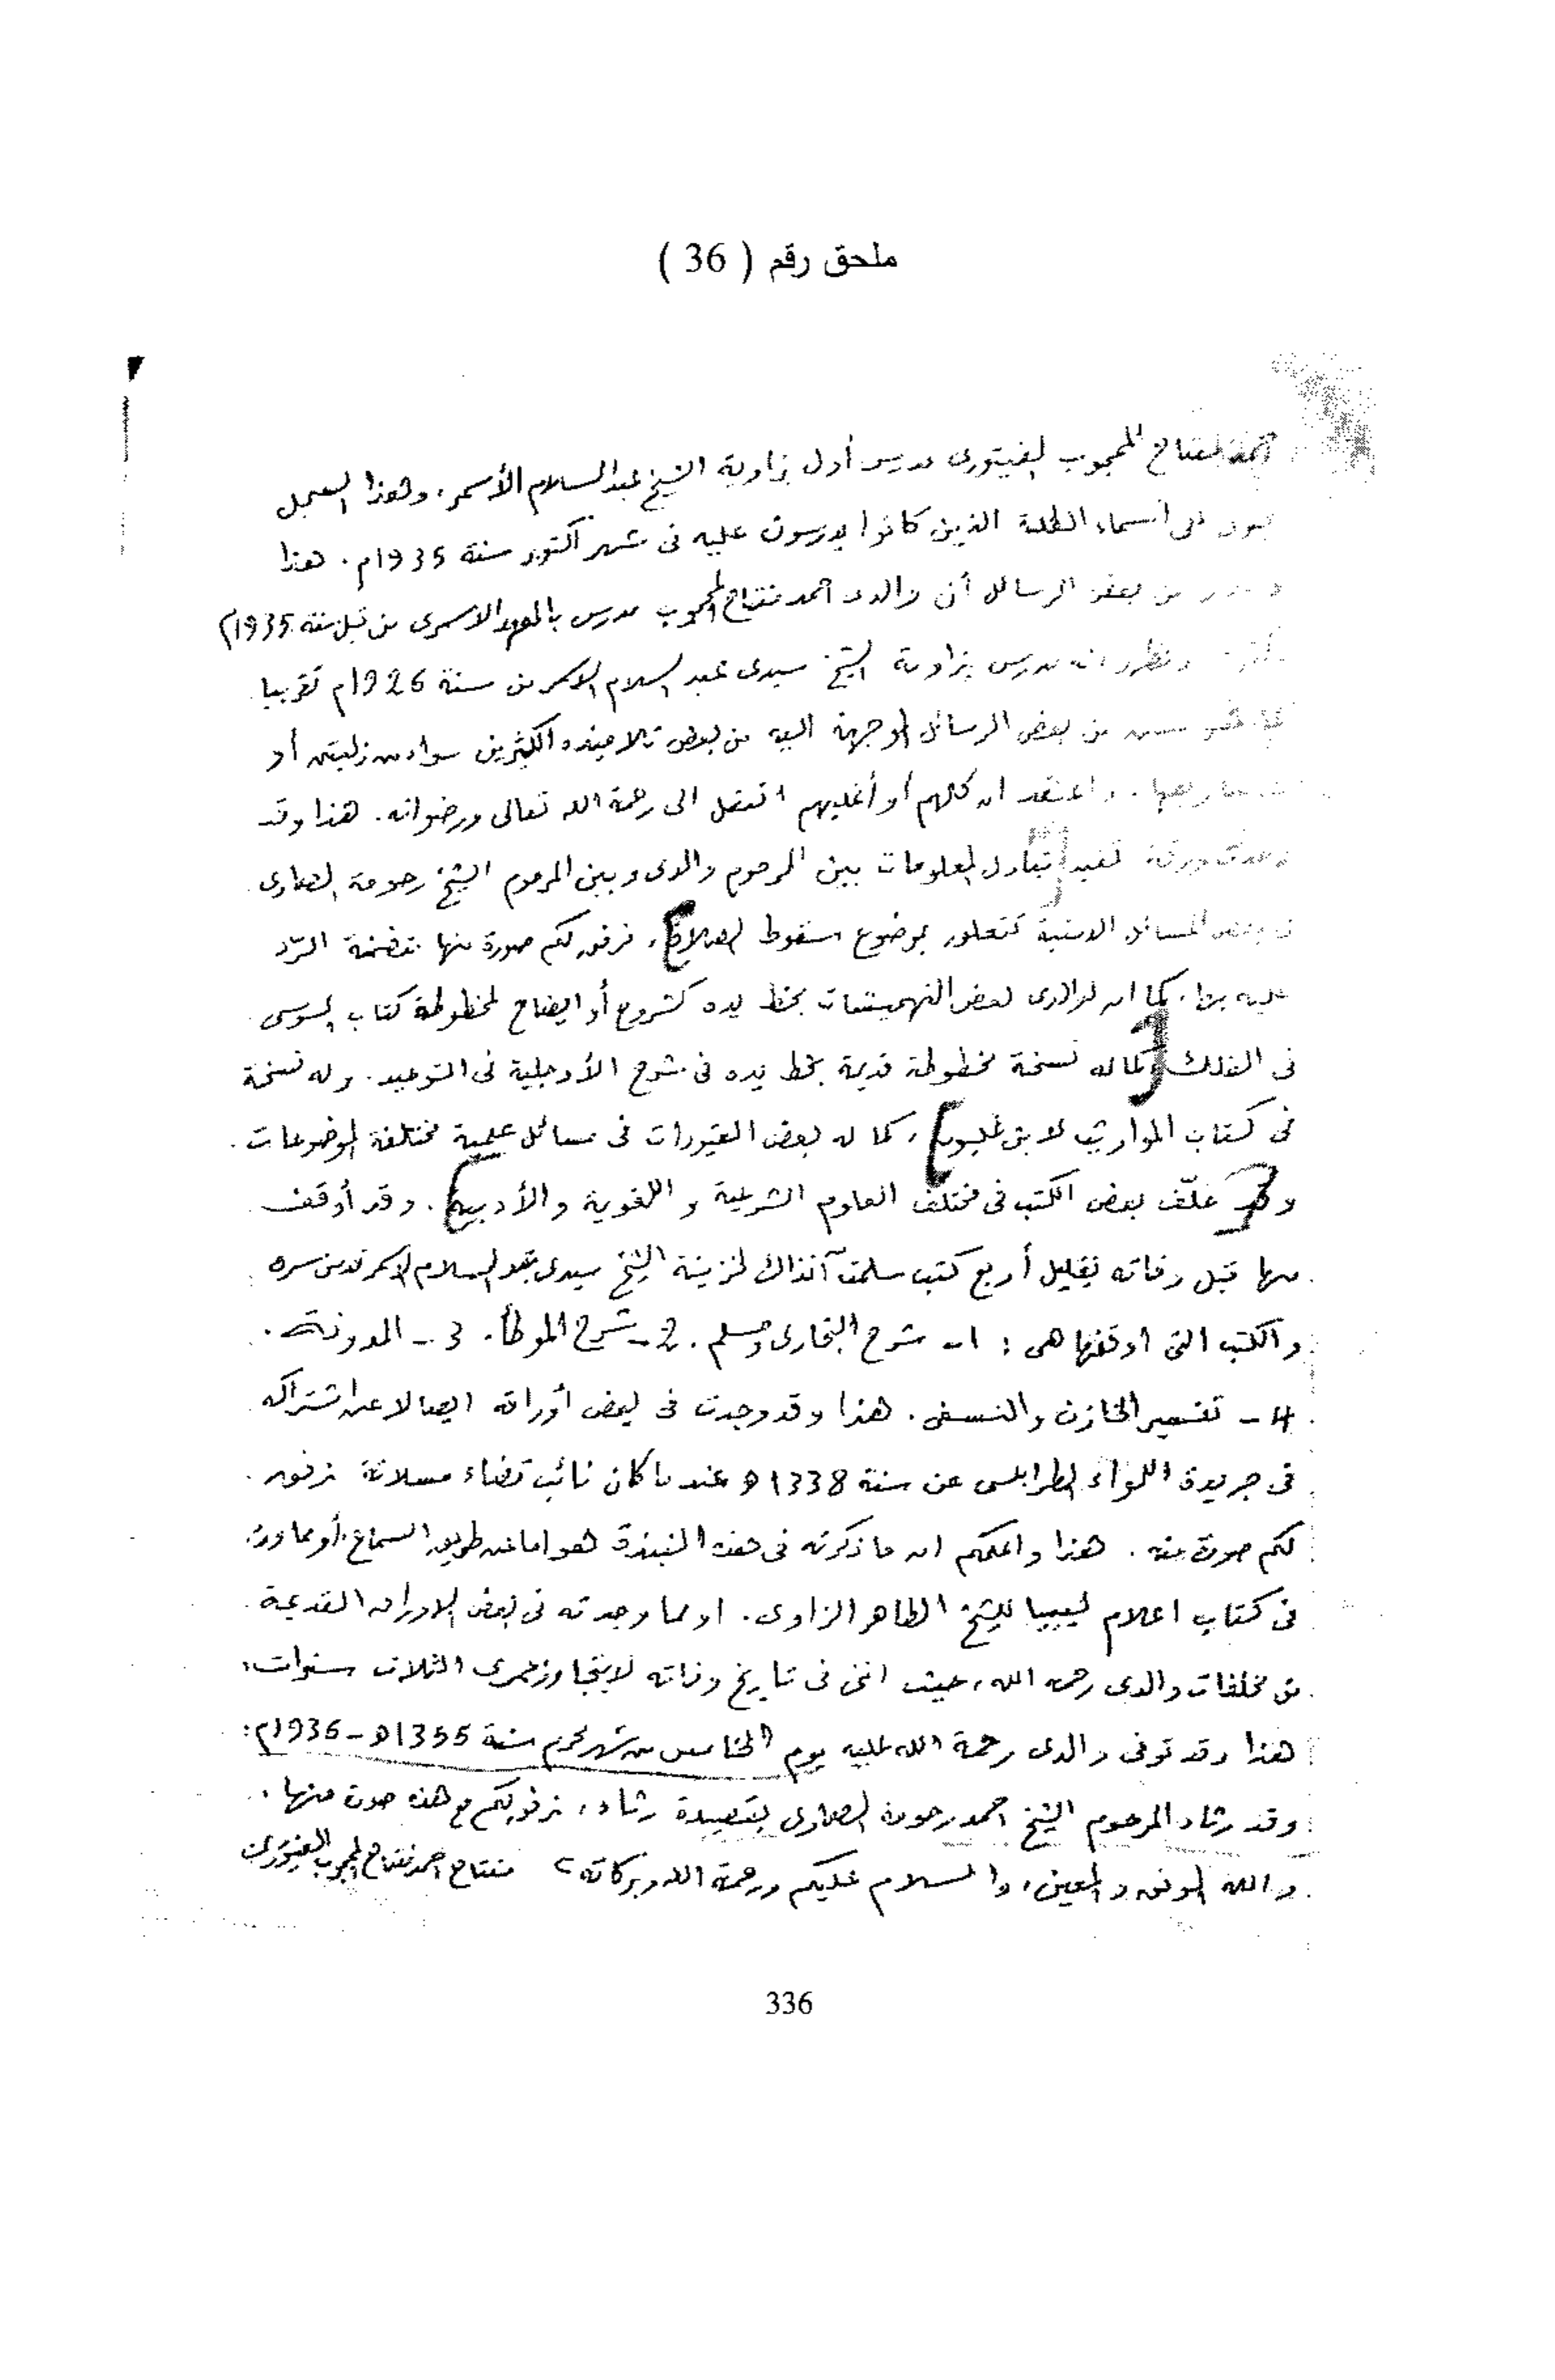 ملحق رقم ( 36 )
المحجوب الفيتورى مدرس أول بزاوية الشيخ عبد السلام الأسمر، وهذا السجل
أسماء الطلبة الذين كانوا يدرسون عليه فى شهر أكتوبر سنة 1935م. هذا
من بعض الرسائل أن والدى احمد مفتاح المحجوب مدرس بالمعهد الاسمرى من قبل سنة 1935م
مدرس بزاوية الشيخ سيدى عبد السلام الاسمر من سنة 1926م تقريبا
من بعض الرسائل الموجهة اليه من بعض تلاميذه الكثيرين سواء من زليتن أو
واعتقد ان كلهم أو أغلبهم انتقل الى رحمة الله تعالى ورضوانه. هذا وقد
ورقة تفيد تبادل المعلومات بين المرحوم والدى وبين المرحوم الشيخ رحومة الصارى
المسائل الدينية تتعلق بموضوع سقوط الصلاة، نرفق لكم صورة منها متضمنة الرّد
عليه بها. كما ان لوالدى بعض التهميشات بخط يده كشروح أو ايضاح لمخطوطة كتاب السوسى
فى الفلك كما له نسخة مخطوطة قديمة بخط يده فى شرح الأوجلية فى التوحيد. وله نسخة
فى كتاب المواريث لابن غلبون، كما له بعض التقيدات فى مسائل علمية مختلفة الموضوعات.
وقد خلّف بعض الكتب فى مختلف العلوم الشرعية و اللغوية والأدبية. وقد أوقف
منها قبل وفاته بقليل أربع كتب سلمت آنذاك لخزينة الشيخ سيدى عبد السلام الاسمر قدس سره
والكتب التى اوقفها هى : 1- شرح البخارى ومسلم. 2- شرح الموطأ. 3- المدونة.
4 - تفسير الخازن والنسفى. هذا وقد وجدت فى بعض أوراقه ايصالا عن اشتراكه
فى جريدة اللواء الطرابلسى عن سنة 1338ه عندما كان نائب قضاء مسلاتة نرفق
لكم صورة منه. هذا واعلمكم ان ما ذكرته فى هذه النبذة هو اما عن طريق السماع، أو مما ورد
فى كتاب اعلام ليبيا للشيخ الطاهر الزاوى. او مما وجدته فى بعض الاوراق القديمة
من مخلفات والدى رحمه الله، حيث اننى فى تاريخ وفاته لا يتجاوز عمرى الثلاث سنوات،
هذا وقد توفى والدى رحمة الله عليه يوم الخامس من شهر محرم سنة 1355ه - 1936م:
وقد رثاه المرحوم الشيخ احمد رحومة الصارى بقصيدة رثاء، نرفق لكم مع هذه صورة منها.
والله الموفق والمعين، والسلام عليكم ورحمة الله وبركاته، مفتاح احمد مفتاح المحجوب الفيتورى
336